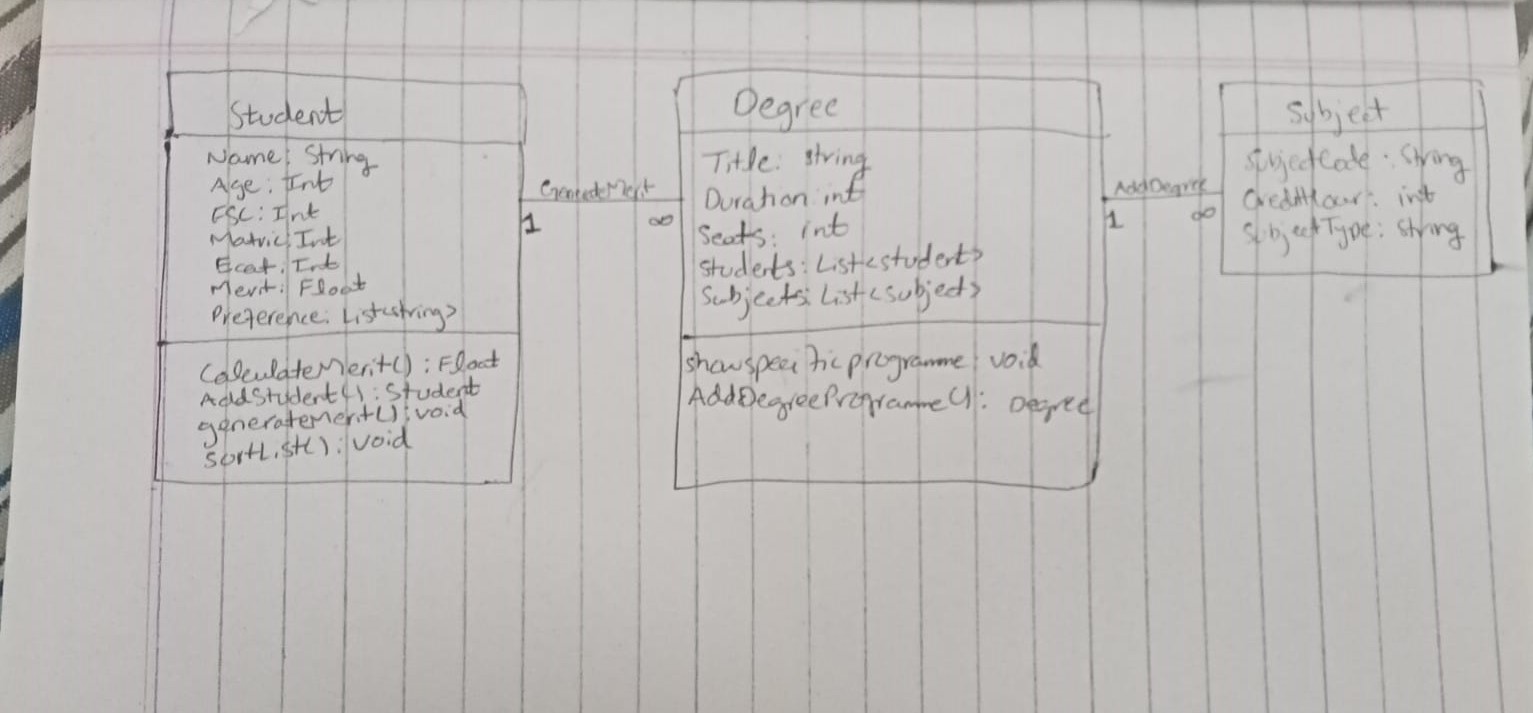 Student
Name: String
Age: Int
FSC: Int
Matric: Int
Ecat: Int
Merit: Float
Preference: List<string>
CalculateMerit(): Float
AddStudent(): Student
generateMerit(): void
SortList(): void
GenerateMerit
1 ∞
Degree
Title: string
Duration: int
Seats: int
Students: List<student>
Subjects: List<subject>
showspecificprogramme: void
AddDegreeProgramme(): Degree
AddDegree
1 ∞
Subject
SubjectCode: String
CreditHour: int
SubjectType: String